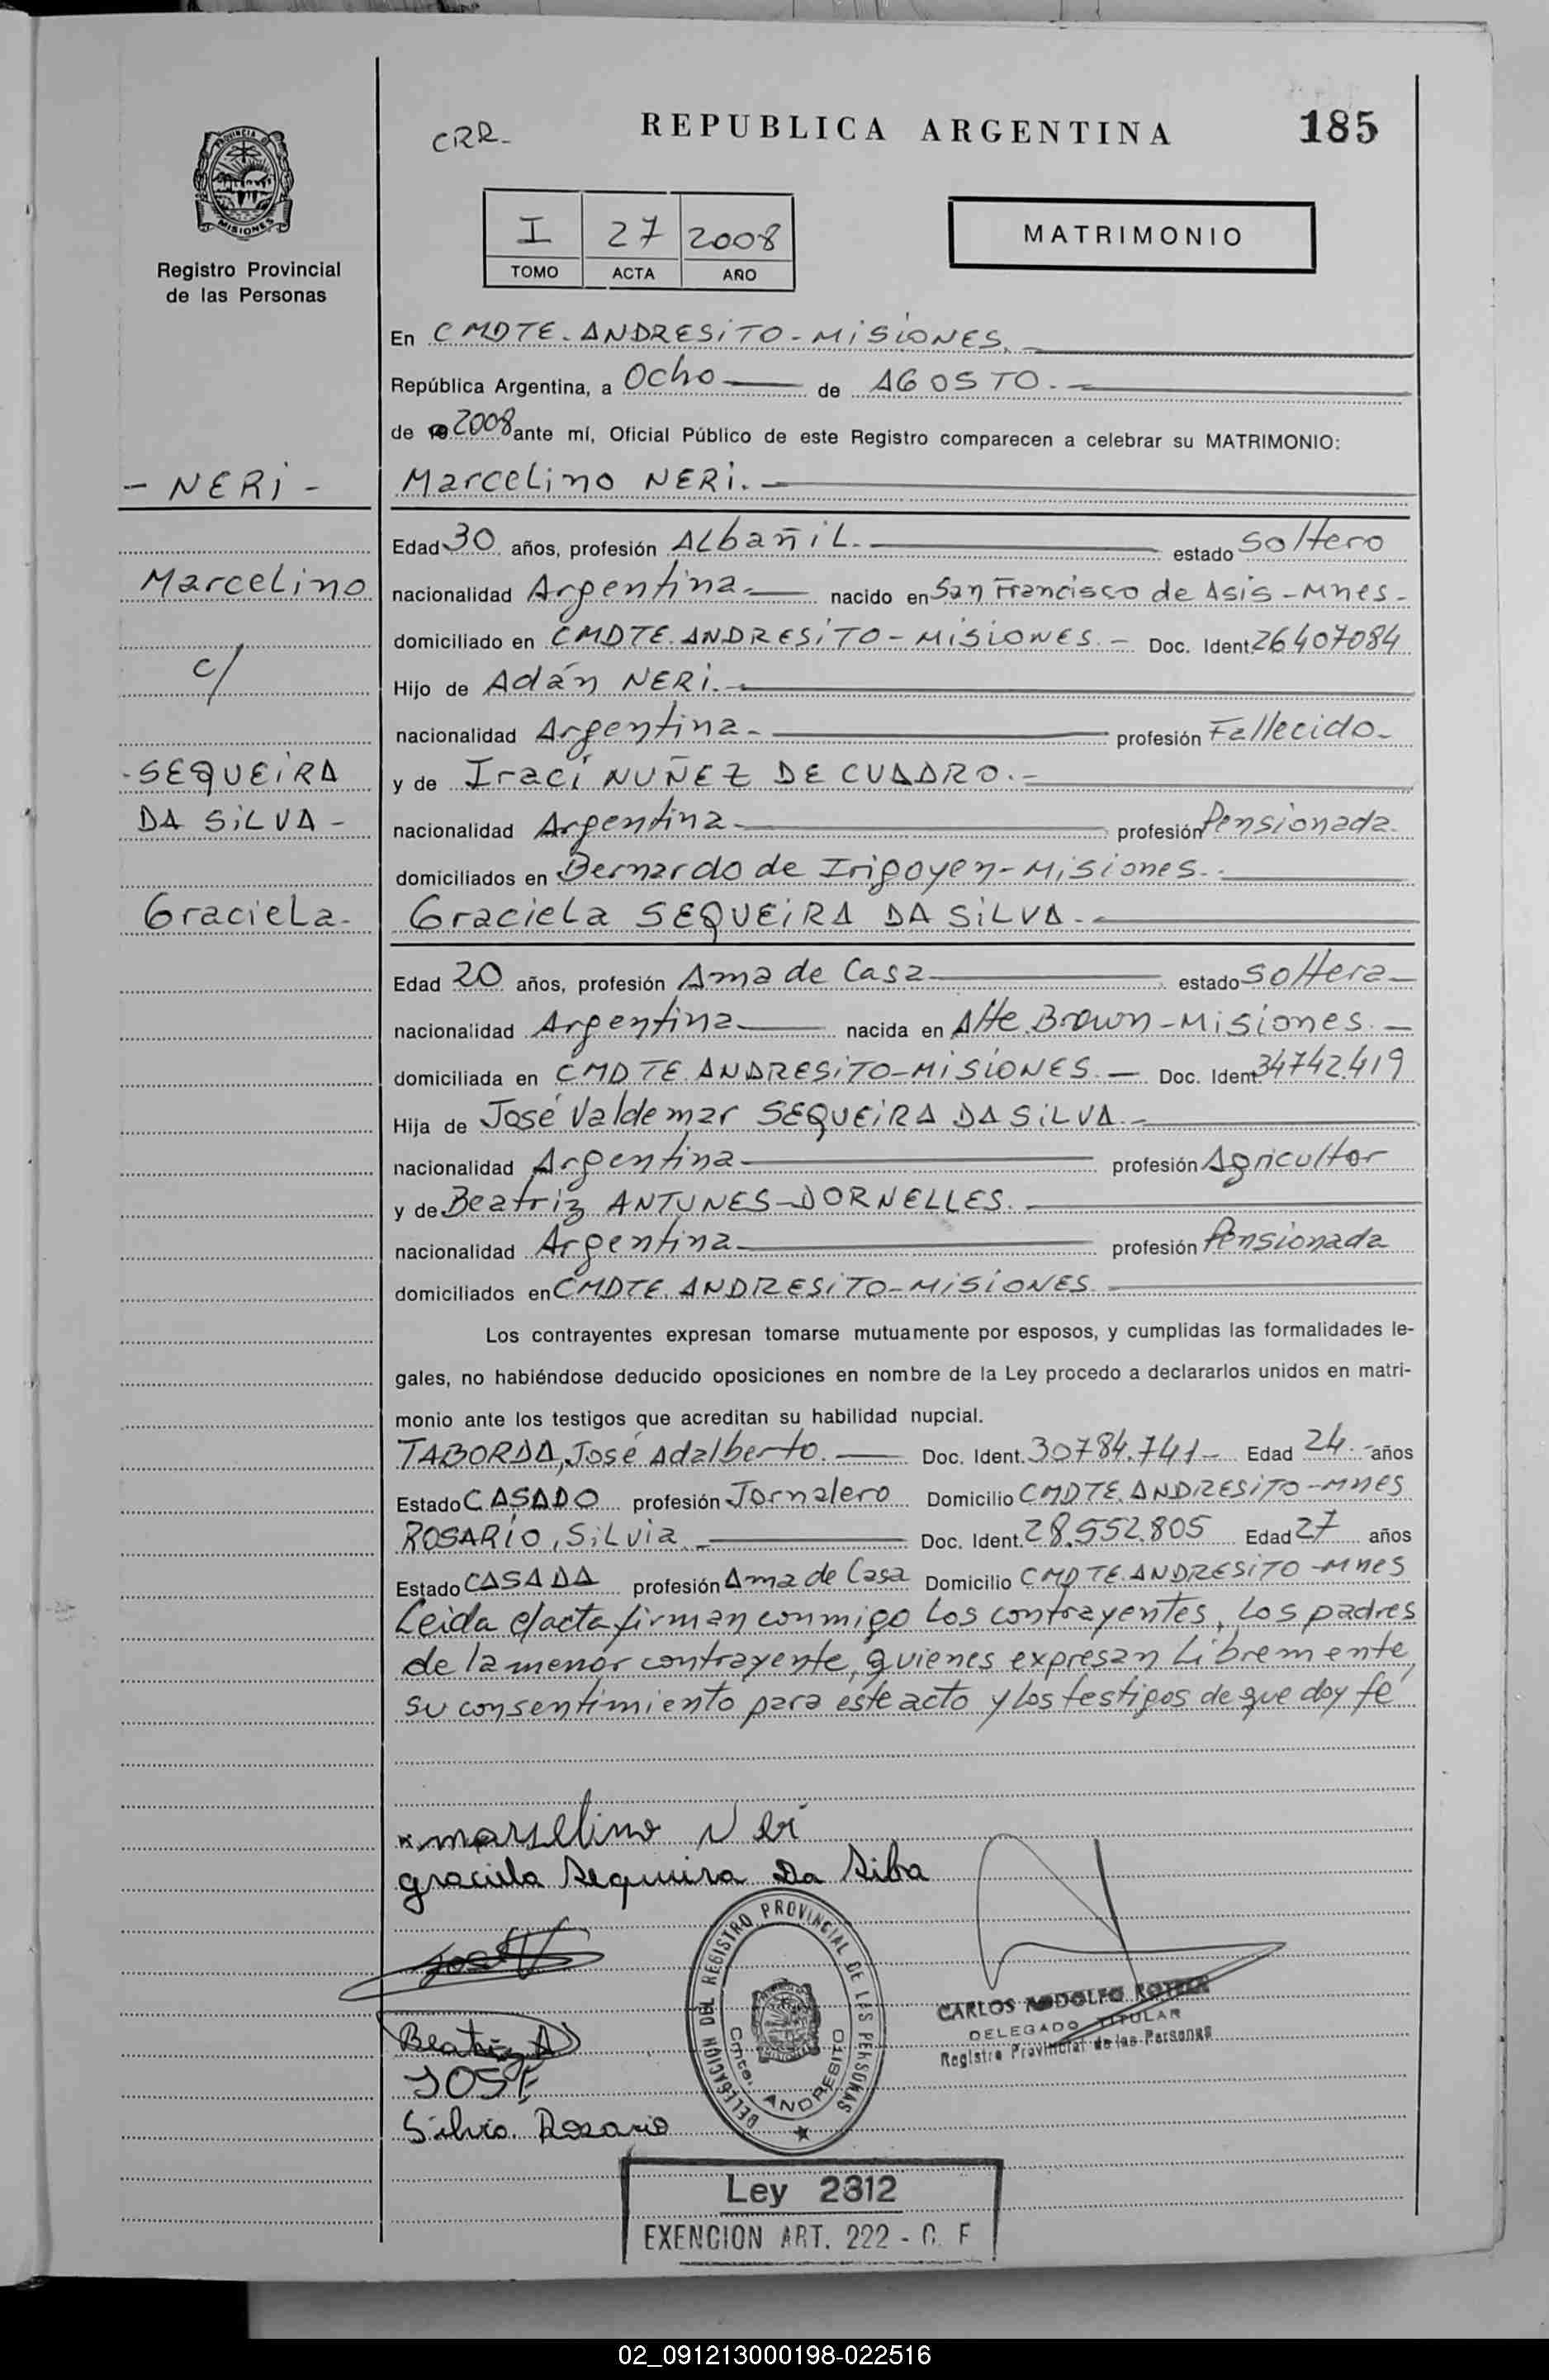 REPUBLICA ARGENTINA
185
CRR-
PROVINCIA D
MISIONES
Registro Provincial
de las Personas
I 27 2008
TOMO ACTA AÑO
MATRIMONIO
En CMDTE. ANDRESiTO - MiSiONES.
República Argentina, a Ocho de AGOSTO.-
de 2008 ante mí, Oficial Público de este Registro comparecen a celebrar su MATRIMONIO:
- NERi -
Marcelino NERi.-
Edad 30 años, profesión Albañil.- estado Soltero
Marcelino
nacionalidad Argentina.- nacido en San Francisco de Asis - Mnes -
domiciliado en CMDTE. ANDRESiTO - MiSiONES. - Doc. Ident 26407084
c/
Hijo de Adán NERi.-
nacionalidad Argentina - profesión Fallecido -
- SEQUEiRA
y de Iraci NUÑEZ DE CUADRO.-
DA SiLVA -
nacionalidad Argentina - profesión Pensionada
domiciliados en Bernardo de Irigoyen - Misiones.-
Graciela -
Graciela SEQUEiRA DA SiLVA.-
Edad 20 años, profesión Ama de Casa - estado Soltera -
nacionalidad Argentina - nacida en Alte. Brown - Misiones. -
domiciliada en CMDTE. ANDRESiTO - MiSiONES. - Doc. Ident. 34742.419
Hija de José Valdemar SEQUEiRA DA SiLVA.-
nacionalidad Argentina - profesión Agricultor
y de Beatriz ANTUNES - DORNELLES.
nacionalidad Argentina - profesión Pensionada
domiciliados en CMDTE. ANDRESiTO - MiSiONES
Los contrayentes expresan tomarse mutuamente por esposos, y cumplidas las formalidades le-
gales, no habiéndose deducido oposiciones en nombre de la Ley procedo a declararlos unidos en matri-
monio ante los testigos que acreditan su habilidad nupcial.
TABORDA, José Adalberto. - Doc. Ident. 30784.741 - Edad 24.- años
Estado CASADO profesión Jornalero Domicilio CMDTE. ANDRESiTO - Mnes
ROSARiO, Silvia. - Doc. Ident. 28.552.805 Edad 27 años
Estado CASADA profesión Ama de Casa Domicilio CMDTE. ANDRESiTO - Mnes
Leida el acta firman conmigo los contrayentes, los padres
de la menor contrayente, quienes expresan Libremente
su consentimiento para este acto y los testigos de que doy fe
x marselino Neri
graciela Sequeira Da Silba
José
Beatriz A
JOSE
Silvia Rosario
DELEGACION DEL REGISTRO PROVINCIAL DE LAS PERSONAS
Cmte. ANDRESITO
CARLOS RODOLFO
DELEGADO TITULAR
Registro Provincial de las Personas
Ley 2312
EXENCION ART. 222 - C. F
02_091213000198-022516